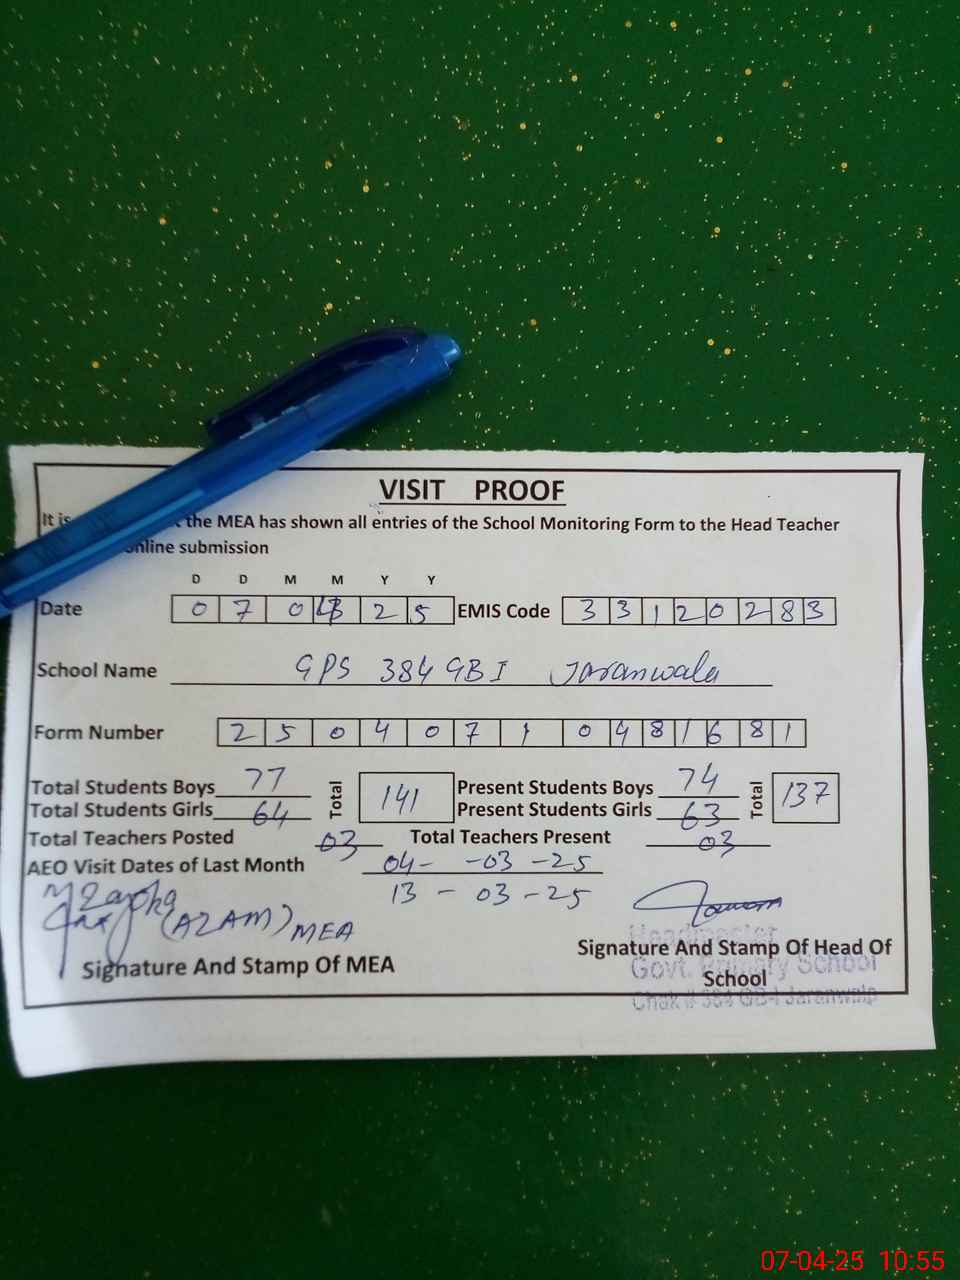 VISIT PROOF
It is the MEA has shown all entries of the School Monitoring Form to the Head Teacher
online submission
D D M M Y Y
Date 0 7 0 4 2 5 EMIS Code 3 3 1 2 0 2 8 3
School Name GPS 384 GB I Jaranwala
Form Number 2 5 0 4 0 7 1 0 4 8 1 6 8 1
Total Students Boys 77 Total 141 Present Students Boys 74 Total 137
Total Students Girls 64 Present Students Girls 63
Total Teachers Posted 03 Total Teachers Present 03
AEO Visit Dates of Last Month 04- -03 -25
13 - 03 -25
(AZAM) MEA
Headmaster
Signature And Stamp Of MEA Signature And Stamp Of Head Of
School
Govt. Primary School
Chak # 384 GB-I Jaranwala
07-04-25 10:55